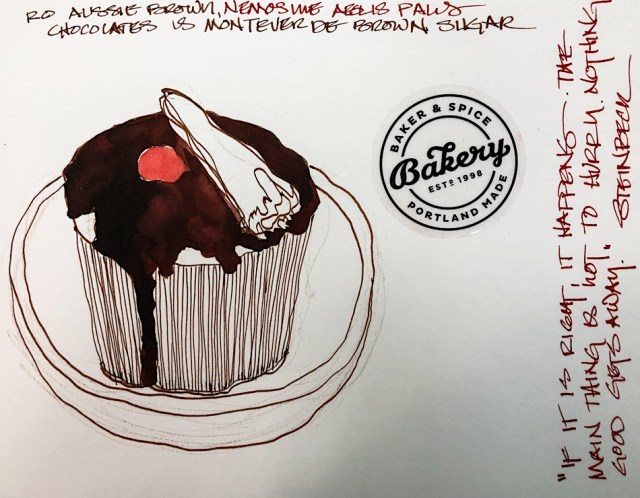 RO AUSSIE BROWN, NEMOSINE AEOLIS PALUS
CHOCOLATES IS MONTEVERDE BROWN SUGAR
BAKER & SPICE
Bakery
ESTD 1998
PORTLAND MADE
"IF IT IS RIGHT, IT HAPPENS - THE
MAIN THING IS NOT TO HURRY. NOTHING
GOOD GETS AWAY." STEINBECK